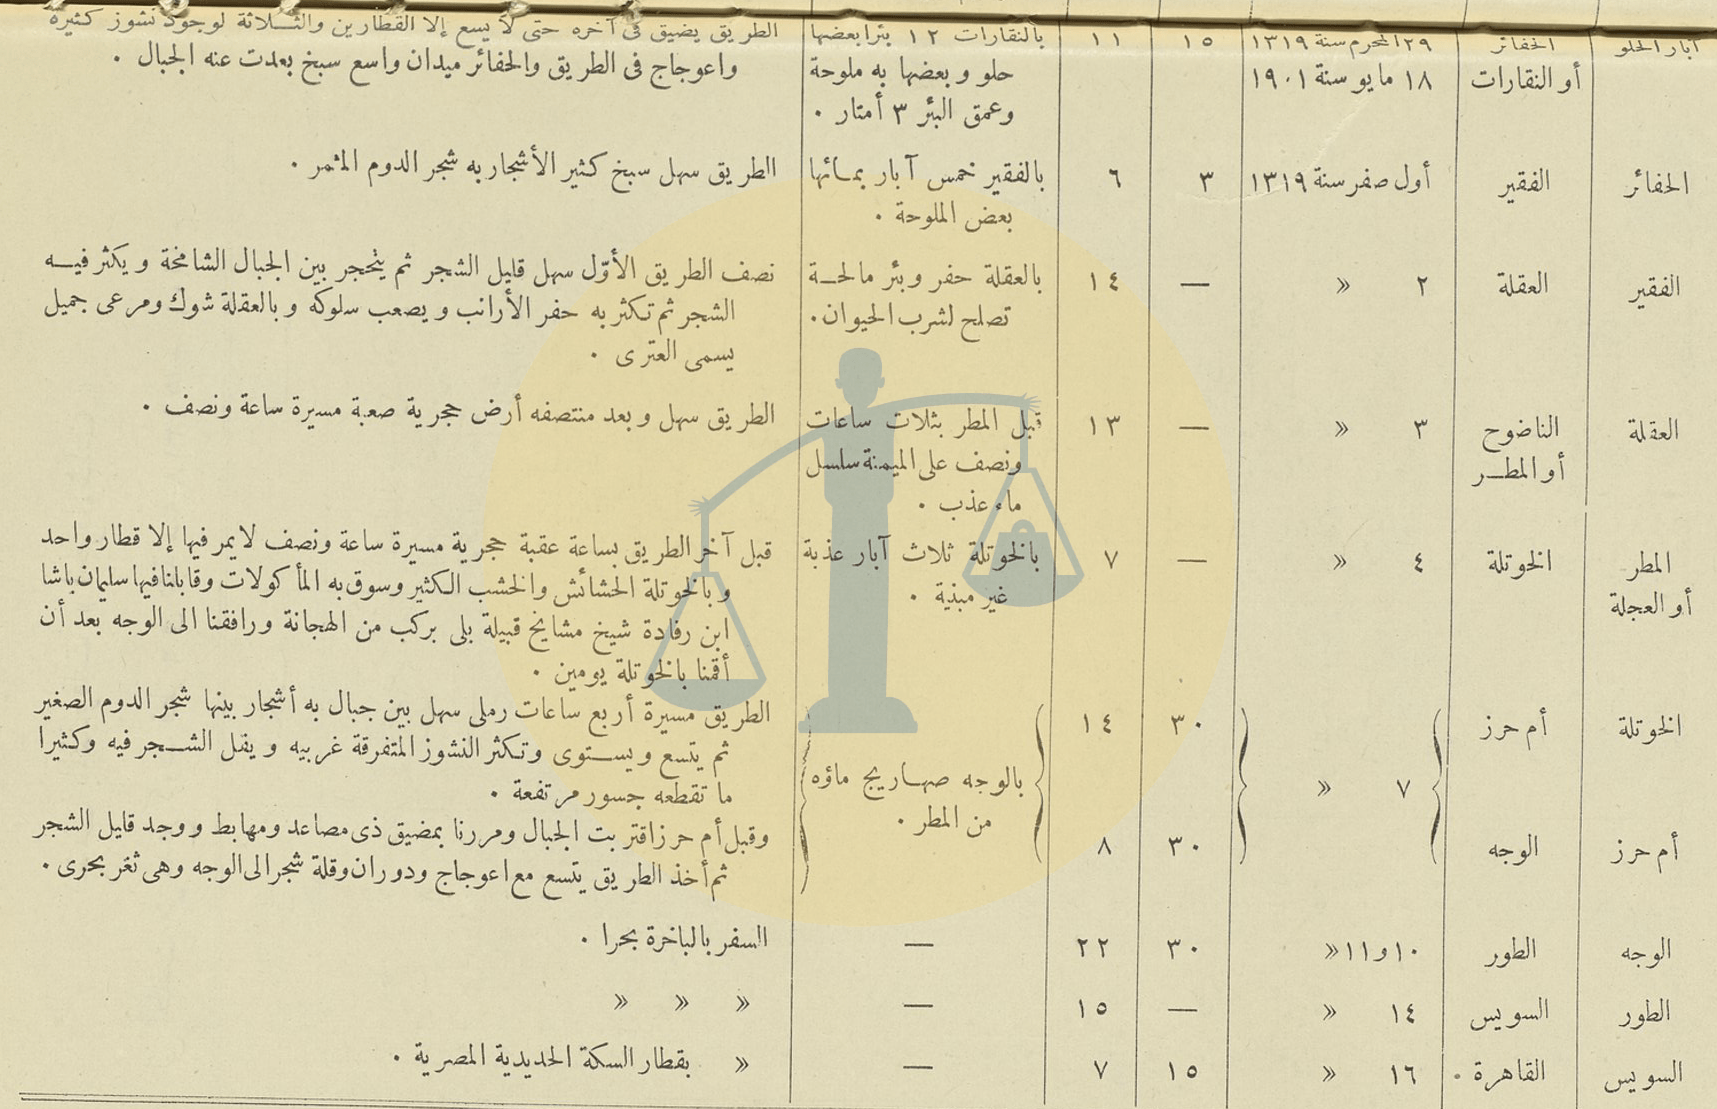 آبار الحلو الخفائر ٢٩ المحرم سنة ١٣١٩ ١٥ ١١ بالنقارات ١٢ بئرا بعضها الطريق يضيق فى آخره حتى لا يسع إلا القطارين والثلاثة لوجود نشوز كثيرة
أو النقارات ١٨ مايو سنة ١٩٠١ حلو وبعضها به ملوحة واعوجاج فى الطريق والحفائر ميدان واسع سبخ بعدت عنه الجبال .
وعمق البئر ٣ أمتار .
الحفائر الفقير أول صفر سنة ١٣١٩ ٣ ٦ بالفقير خمس آبار بمائها الطريق سهل سبخ كثير الأشجار به شجر الدوم المثمر .
بعض الملوحة .
الفقير العقلة ٢ » — ١٤ بالعقلة حفر وبئر مالحة نصف الطريق الأوّل سهل قليل الشجر ثم يتحجر بين الجبال الشامخة ويكثر فيه
تصلح لشرب الحيوان . الشجر ثم تكثر به حفر الأرانب ويصعب سلوكه وبالعقلة شوك ومرعى جميل
يسمى العترى .
العقلة الناضوح ٣ » — ١٣ قبل المطر بثلاث ساعات الطريق سهل وبعد منتصفه أرض حجرية صعبة مسيرة ساعة ونصف .
أو المطر ونصف على الميمنة سلسل
ماء عذب .
المطر الخوتلة ٤ » — ٧ بالخوتلة ثلاث آبار عذبة قبل آخر الطريق بساعة عقبة حجرية مسيرة ساعة ونصف لا يمر فيها إلا قطار واحد
أو العجلة غير مبنية . وبالخوتلة الحشائش والخشب الكثير وسوق به المأكولات وقابلنا فيها سليمان باشا
ابن رفادة شيخ مشايخ قبيلة بلى بركب من الهجانة ورافقنا الى الوجه بعد أن
أقمنا بالخوتلة يومين .
الخوتلة أم حرز ٣٠ ١٤ الطريق مسيرة أربع ساعات رملى سهل بين جبال به أشجار بينها شجر الدوم الصغير
ثم يتسع ويستوى وتكثر النشوز المتفرقة غربيه ويقل الشجر فيه وكثيرا
٧ » بالوجه صهاريج ماؤه ما تقطعه جسور مرتفعة .
من المطر . وقبل أم حرز اقتربت الجبال ومررنا بمضيق ذى مصاعد ومهابط ووجد قليل الشجر
أم حرز الوجه ٣٠ ٨ ثم أخذ الطريق يتسع مع اعوجاج ودوران وقلة شجر الى الوجه وهى ثغر بحرى .
الوجه الطور ١٠ و ١١ » ٣٠ ٢٢ — السفر بالباخرة بحرا .
الطور السويس ١٤ » — ١٥ — » » »
السويس القاهرة . ١٦ » ١٥ ٧ — » بقطار السكة الحديدية المصرية .